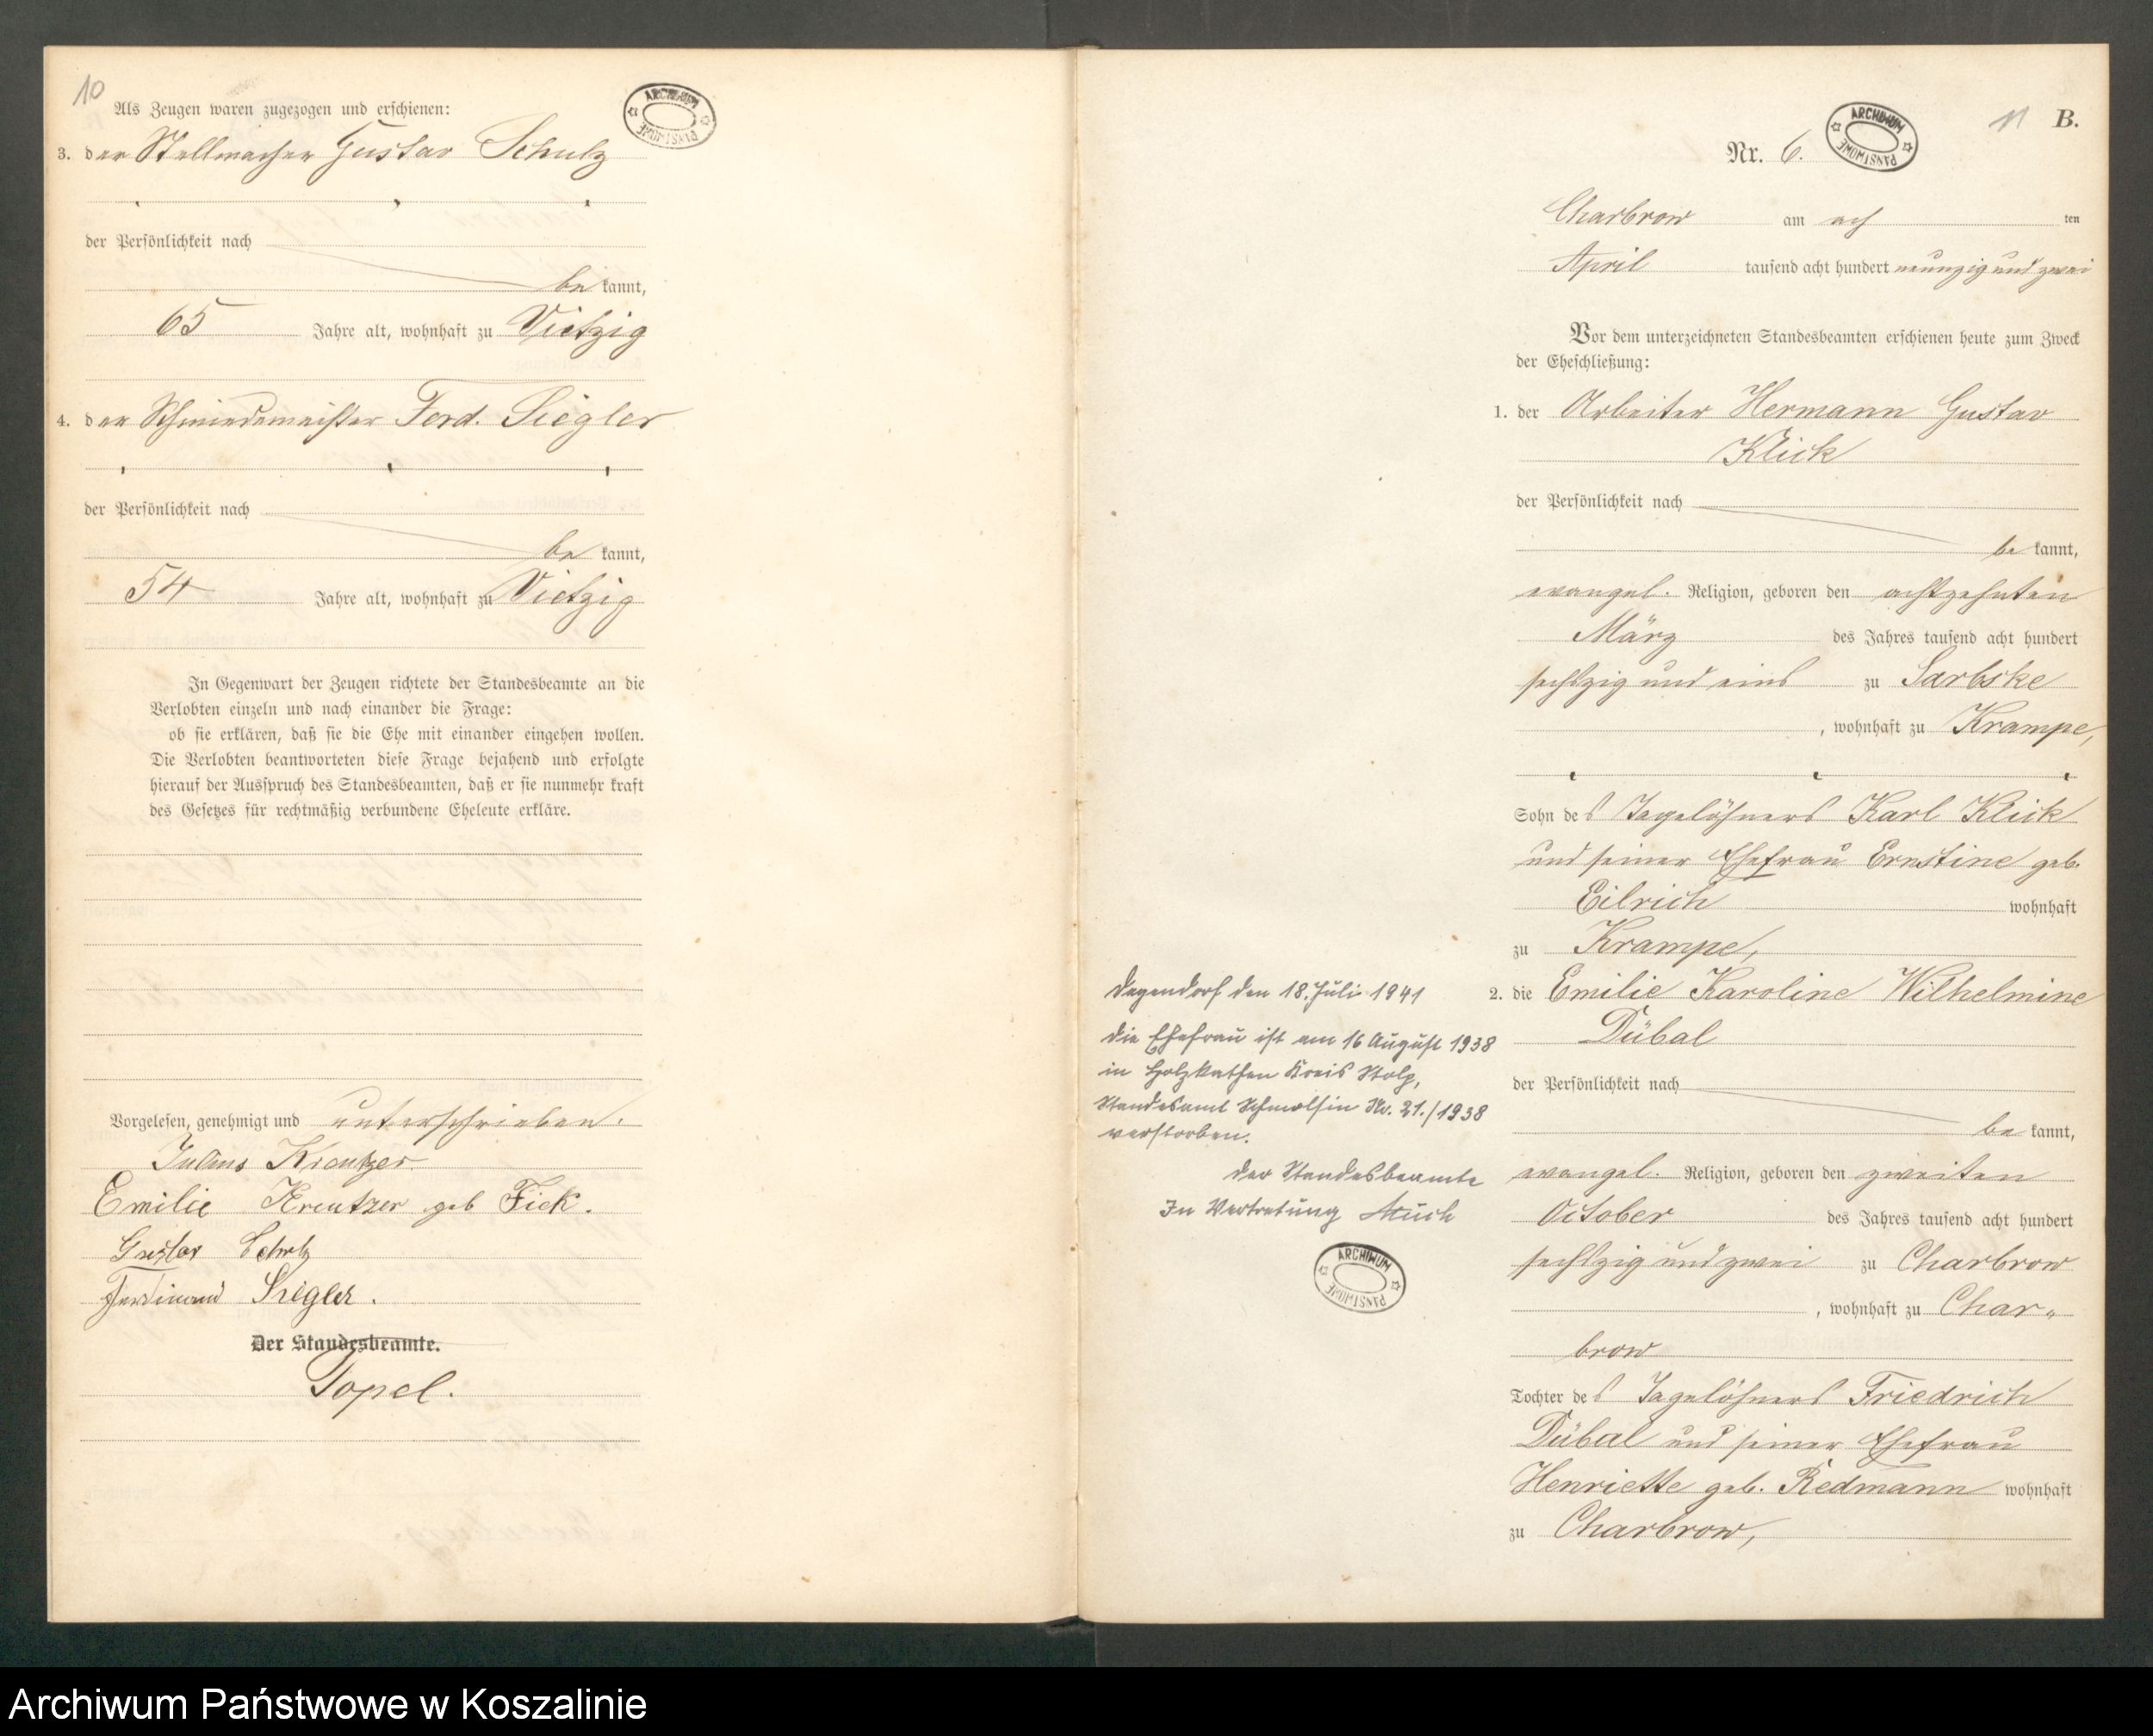 10
Als Zeugen waren zugezogen und erschienen:
3. der Stellmacher Gustav Schulz
der Persönlichkeit nach
be kannt,
65 Jahre alt, wohnhaft zu Vietzig
4. der Schmiedemeister Ferd. Siegler
der Persönlichkeit nach
be kannt,
54 Jahre alt, wohnhaft zu Vietzig
In Gegenwart der Zeugen richtete der Standesbeamte an die
Verlobten einzeln und nach einander die Frage:
ob sie erklären, daß sie die Ehe mit einander eingehen wollen.
Die Verlobten beantworteten diese Frage bejahend und erfolgte
hierauf der Ausspruch des Standesbeamten, daß er sie nunmehr kraft
des Gesetzes für rechtmäßig verbundene Eheleute erkläre.
Vorgelesen, genehmigt und unterschrieben.
Julius Kreutzer
Emilie Kreutzer geb Fick.
Gustav
Ferdinand Siegler.
Der Standesbeamte.
Topel.
ARCHIWUM PAŃSTWOWE
11 B.
Nr. 6.
ARCHIWUM PAŃSTWOWE
Charbrow am ach ten
April tausend acht hundert neunzig und zwei
Vor dem unterzeichneten Standesbeamten erschienen heute zum Zweck
der Eheschließung:
1. der Arbeiter Hermann Gustav
Klick
der Persönlichkeit nach
be kannt,
evangel. Religion, geboren den achtzehnten
März des Jahres tausend acht hundert
sechszig und eins zu Sarbske
, wohnhaft zu Krampe,
Sohn des Tagelöhners Karl Klick
und seiner Ehefrau Ernstine geb.
Eilrich wohnhaft
zu Krampe,
2. die Emilie Karoline Wilhelmine
Dübal
der Persönlichkeit nach
be kannt,
evangel. Religion, geboren den zweiten
October des Jahres tausend acht hundert
sechszig und zwei zu Charbrow
, wohnhaft zu Char-
brow
Tochter des Tagelöhners Friedrich
Dübal und seiner Ehefrau
Henriette geb. Redmann wohnhaft
zu Charbrow,
Degendorf den 18. Juli 1941
die Ehefrau ist am 16 August 1938
in Holzkathen Kreis Stolp,
Standesamt Schmolsin Nr. 21./1938
verstorben.
Der Standesbeamte
In Vertretung
ARCHIWUM PAŃSTWOWE
Archiwum Państwowe w Koszalinie